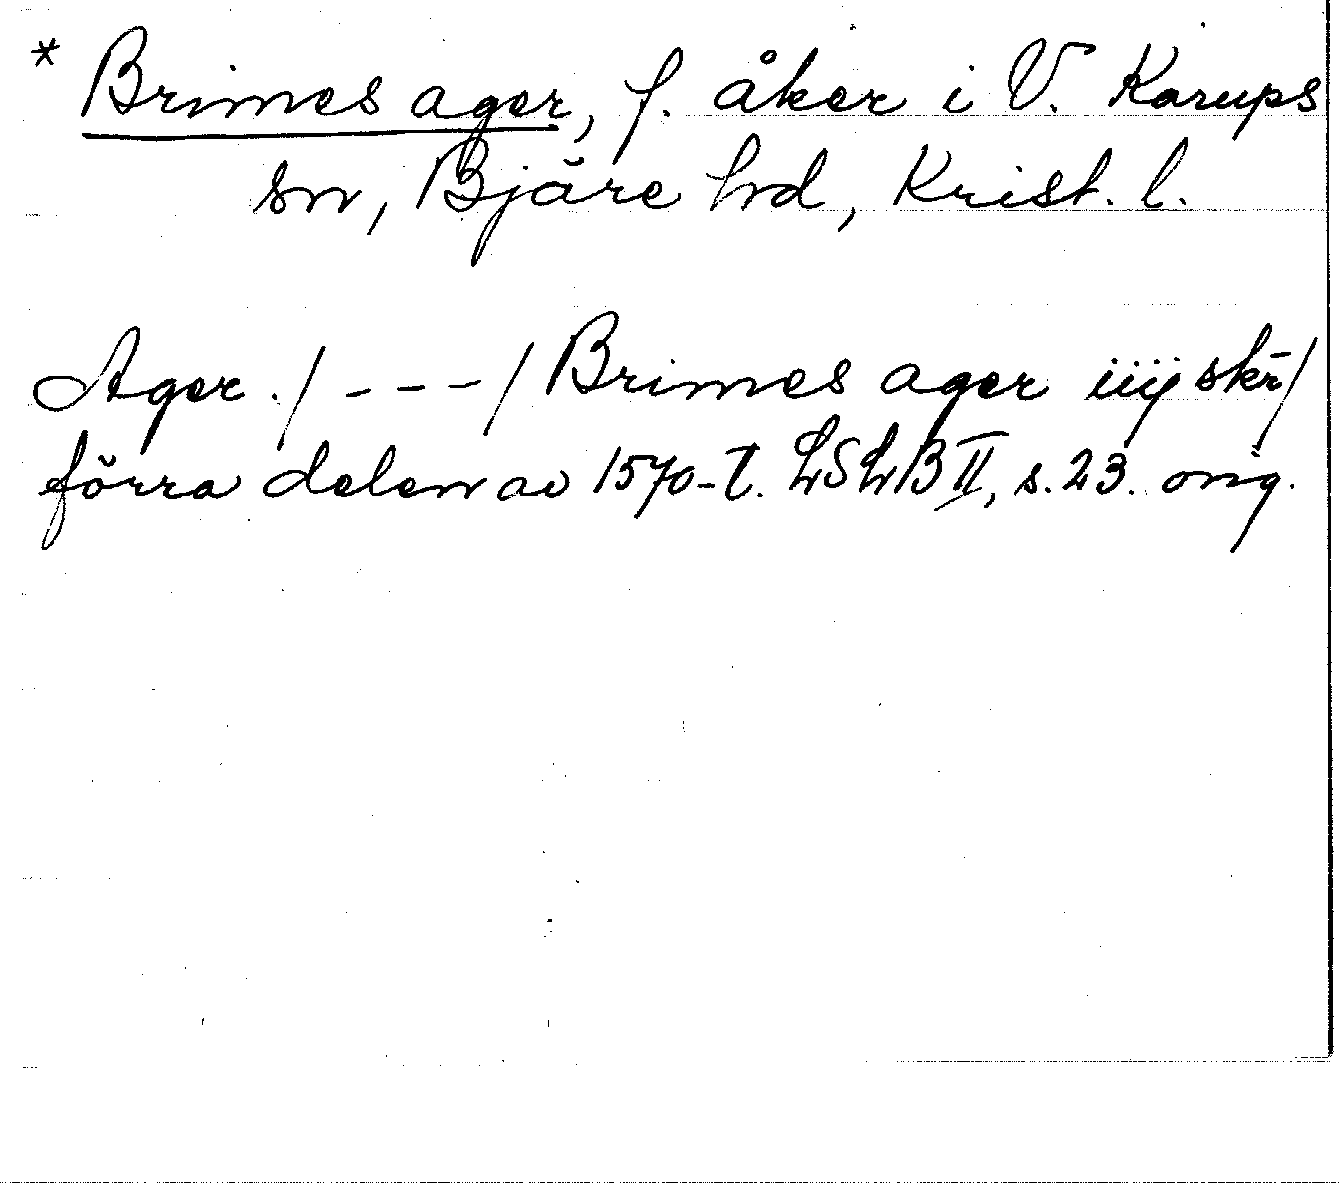 * Brimes ager, f. åker i V. Karups
sn, Bjäre hd, Krist. l.
Ager ./ - - - / Brimes ager iiij skr̄ /
förra delen av 1570-t. LSLB II, s. 23. orig.